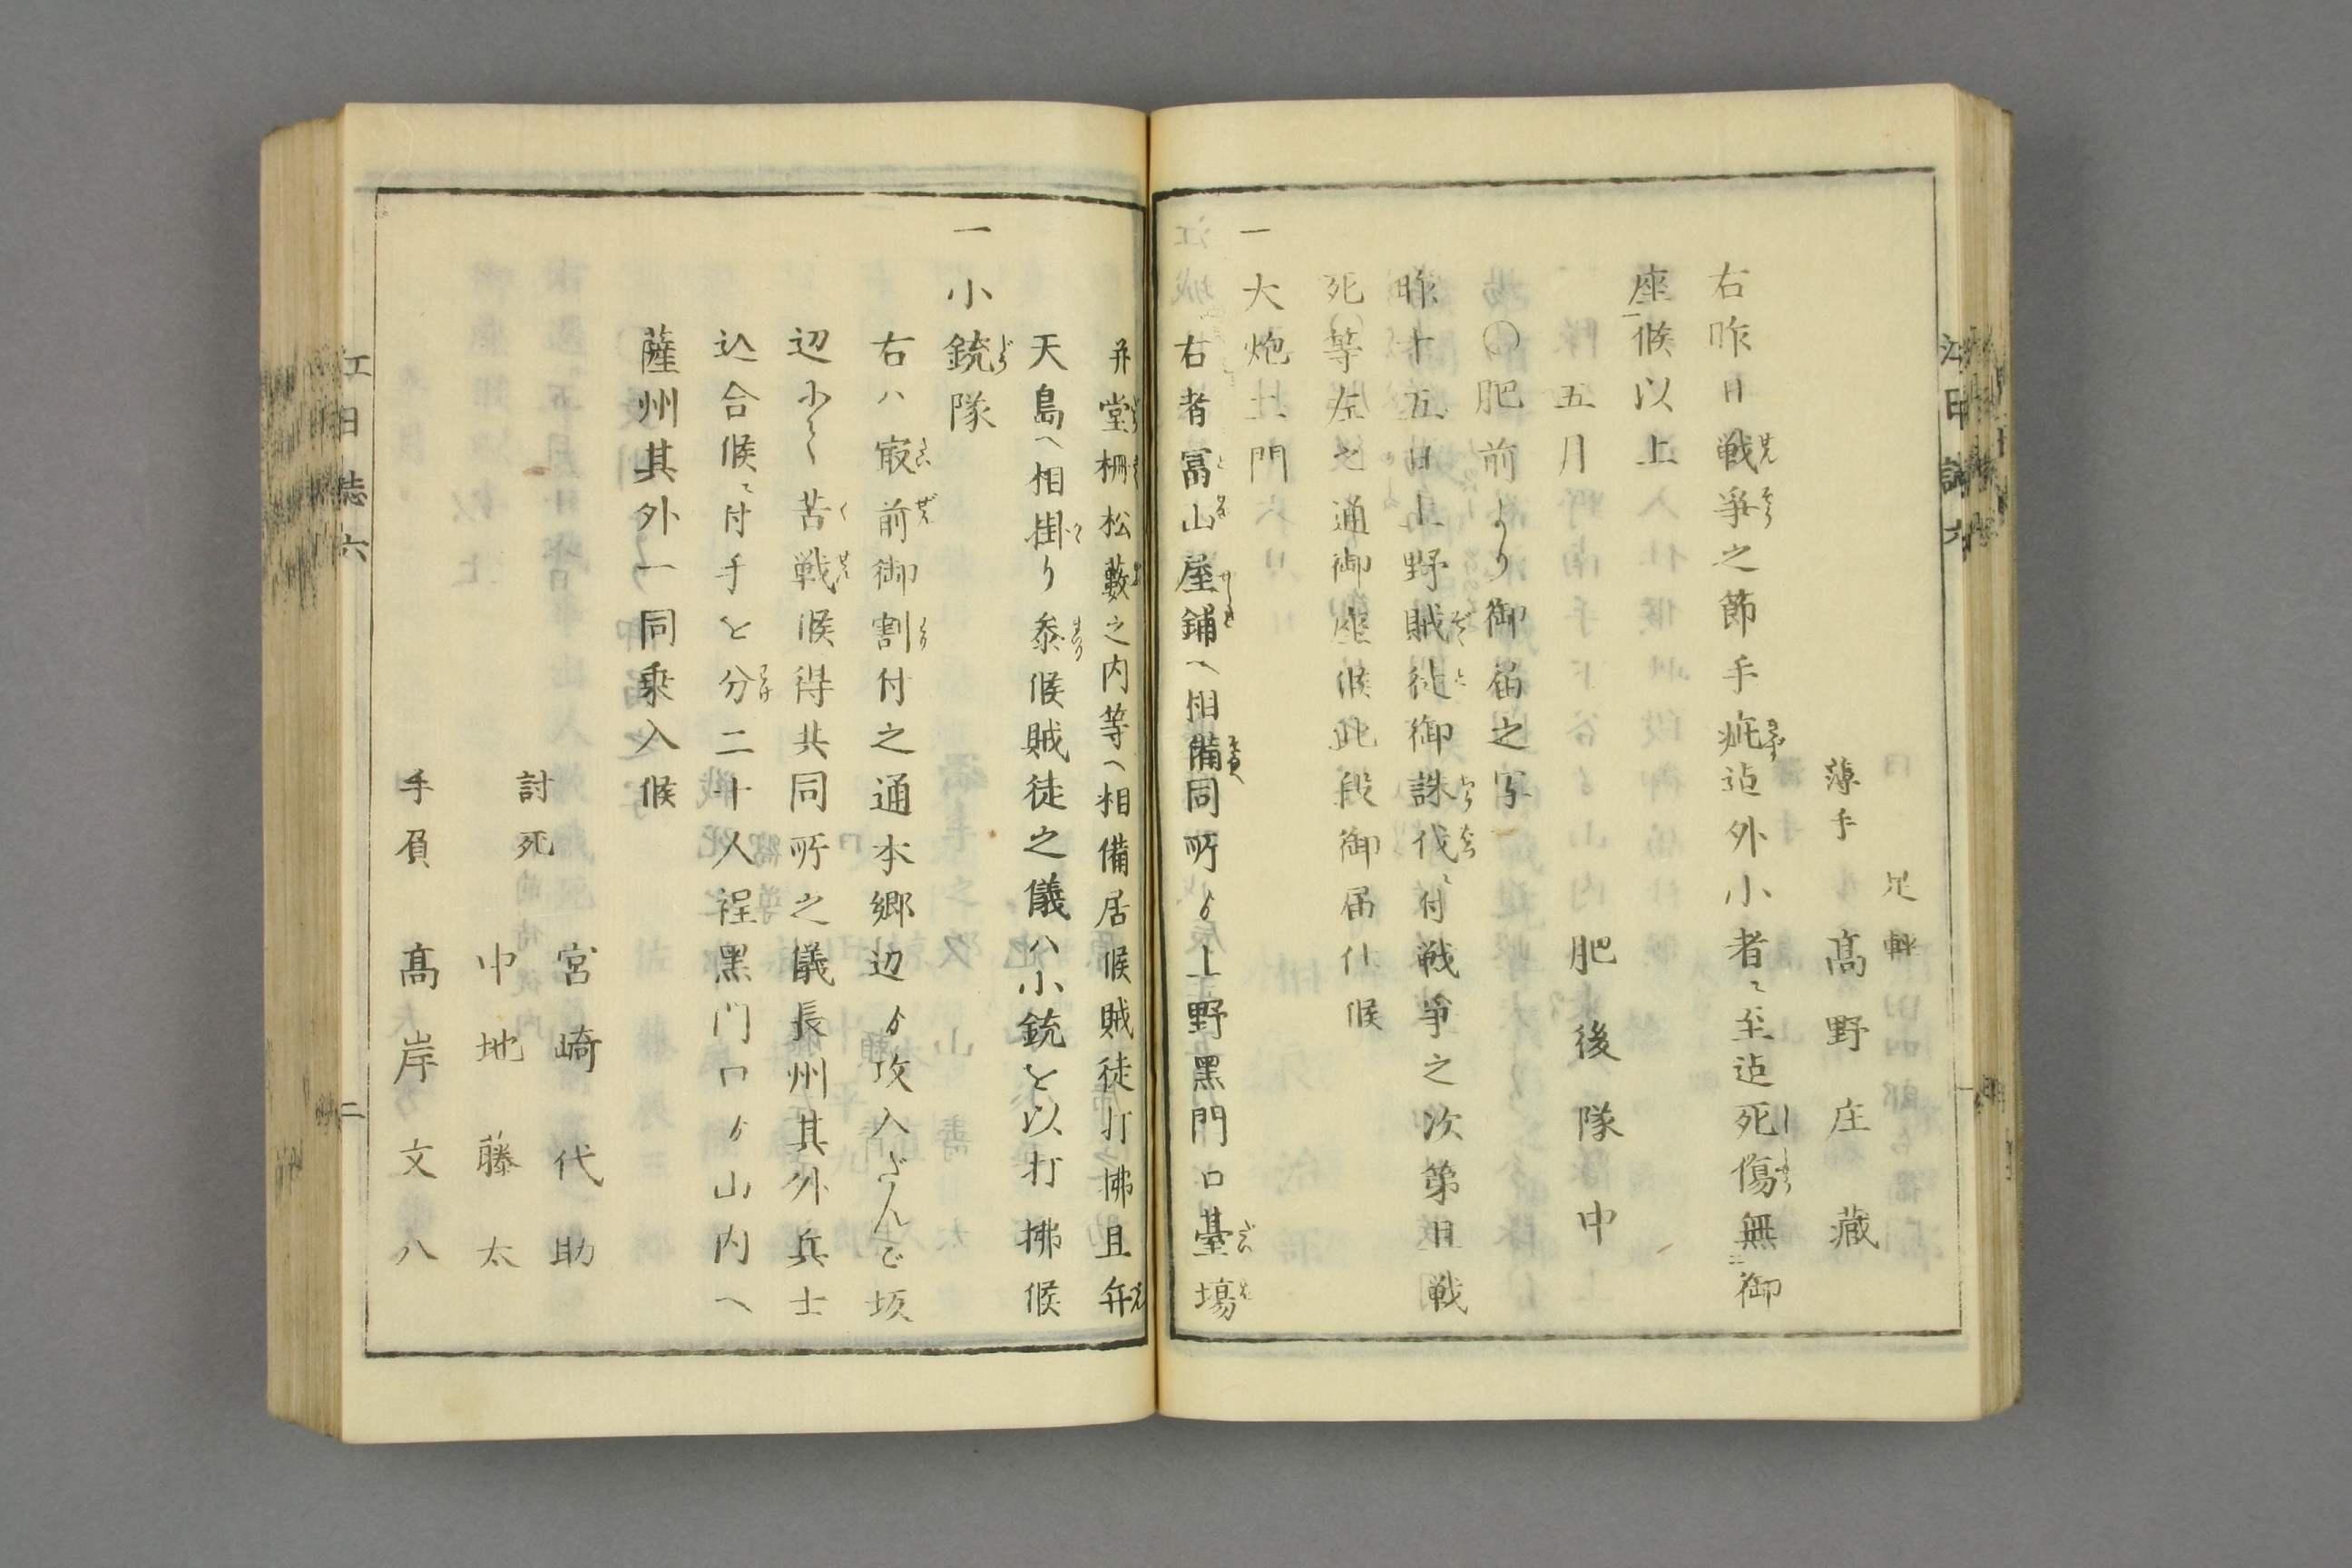 足軽
薄手 髙野庄藏
右昨日戦爭之節手疵迠外小者ニ至迠死傷無御
座候以上
五月 肥後隊中
〇肥前より御届之写
昨十五日上野賊徒御誅伐ニ付戦爭之次第且戦
死等左之通御座候此段御届仕候
一 大炮土門
右者冨山屋鋪へ相備同所ゟ上野黒門口臺場
并堂柵松藪之内等へ相備居候賊徒打拂且弁
天島へ相掛り叅候賊徒之儀ハ小銃を以打拂候
一 小銃隊
右ハ㝡前御割付之通本郷辺ゟ攻入ざんじ坂
辺ニて苦戦候得共同所之儀長州其外兵士
込合候ニ付手を分二十人程黒门口ゟ山内へ
薩州其外一同乗入候
討死 宮崎代助
中地藤太
手負 髙岸文八
江日誌六 二